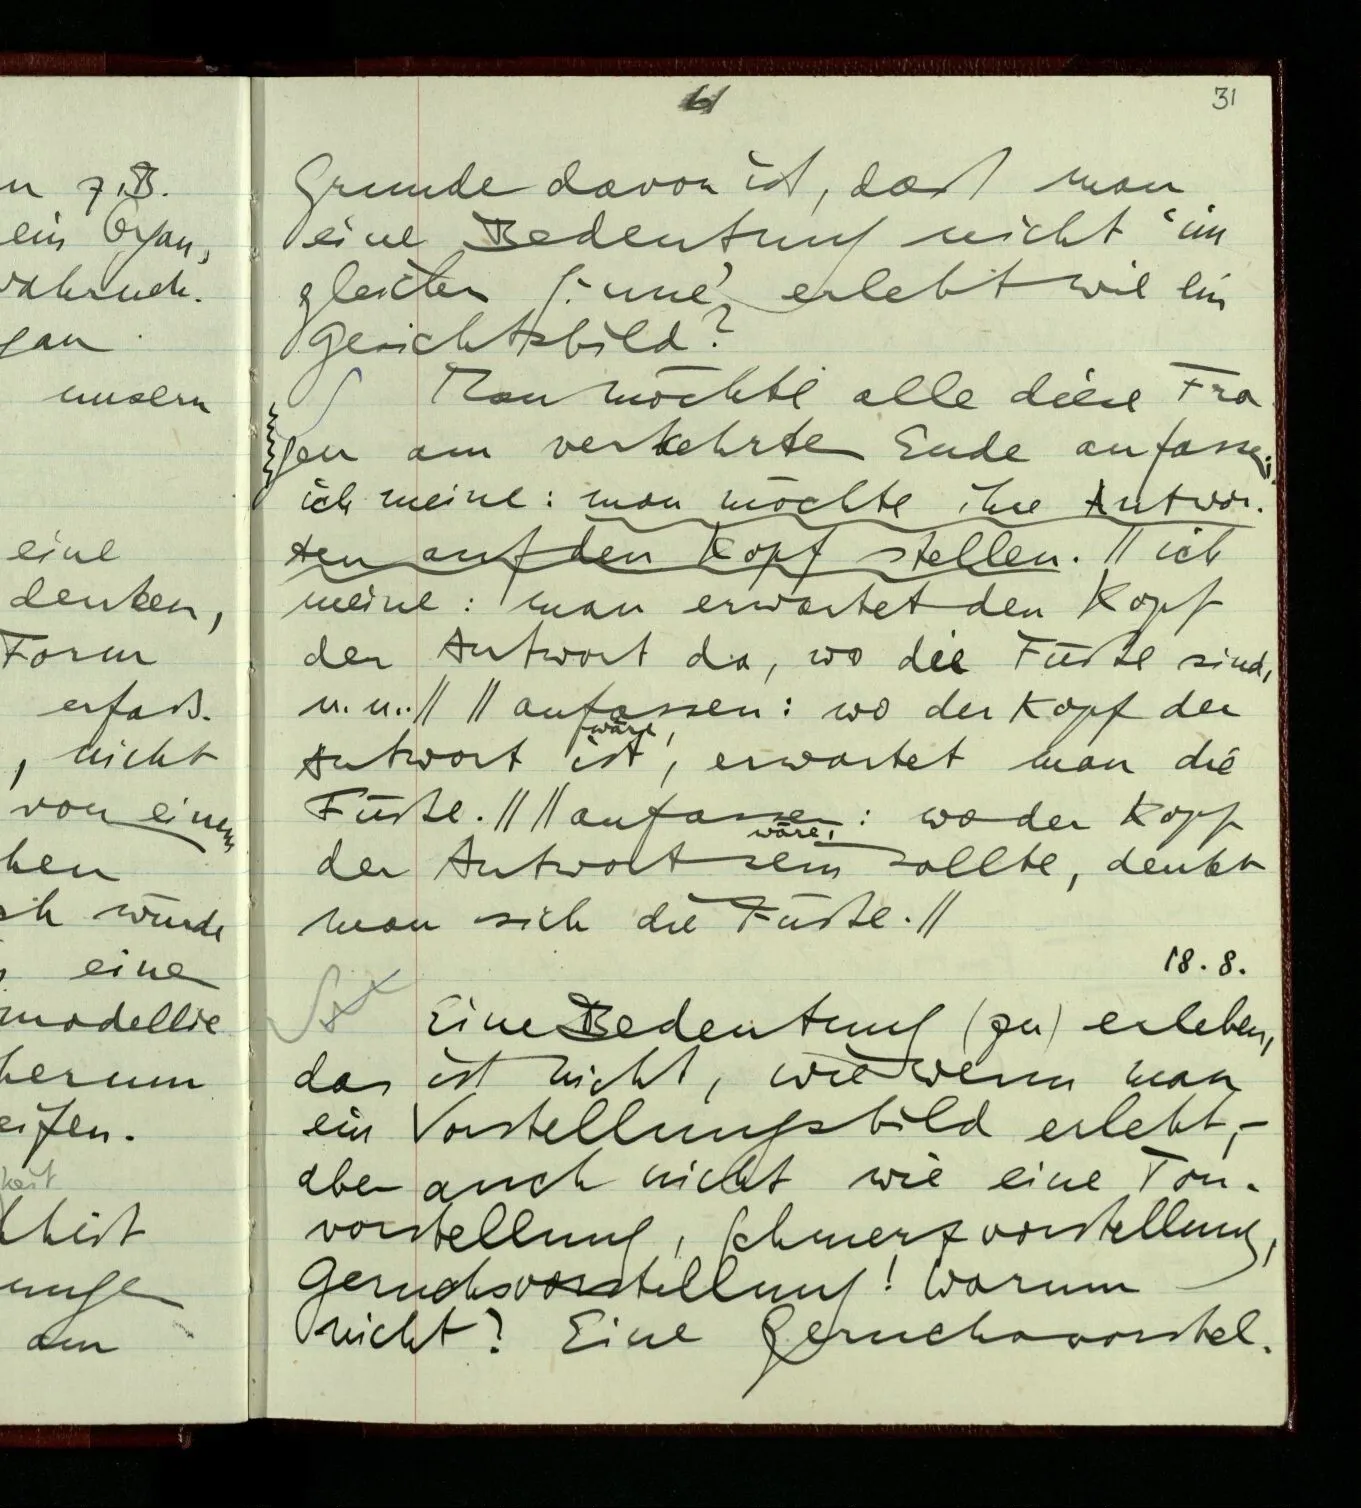 n z.B.
ein Organ,
wahrneh-
gan
unsern
eine
denken,
Form
erfaß-
, nicht
von einem
hen
ich würde
eine
modellie
herum
eifen.
keit
am
61
31
Grunde davon ist, daß man
eine Bedeutung nicht 'im
gleichen Sinne' erlebt wie ein
Gesichtsbild?
∫ Man möchte alle diese Fra
gen am verkehrten Ende anfassen;
ich meine: man möchte ihre Antwor-
ten auf den Kopf stellen. || ich
meine: man erwartet den Kopf
der Antwort da, wo die Füße sind,
u.u.. || || anfassen: wo der Kopf der
wäre,
Antwort ist, erwartet man die
Füße. || || anfassen: wo der Kopf
wäre,
der Antwort sein sollte, denkt
man sich die Füße. ||
18.8.
∫ Eine Bedeutung (zu) erleben,
das ist nicht, wie wenn man
ein Vorstellungsbild erlebt, –
aber auch nicht wie eine Ton-
vorstellung, Schmerzvorstellung,
Geruchsvorstellung! Warum
nicht? Eine Geruchsvorstel-